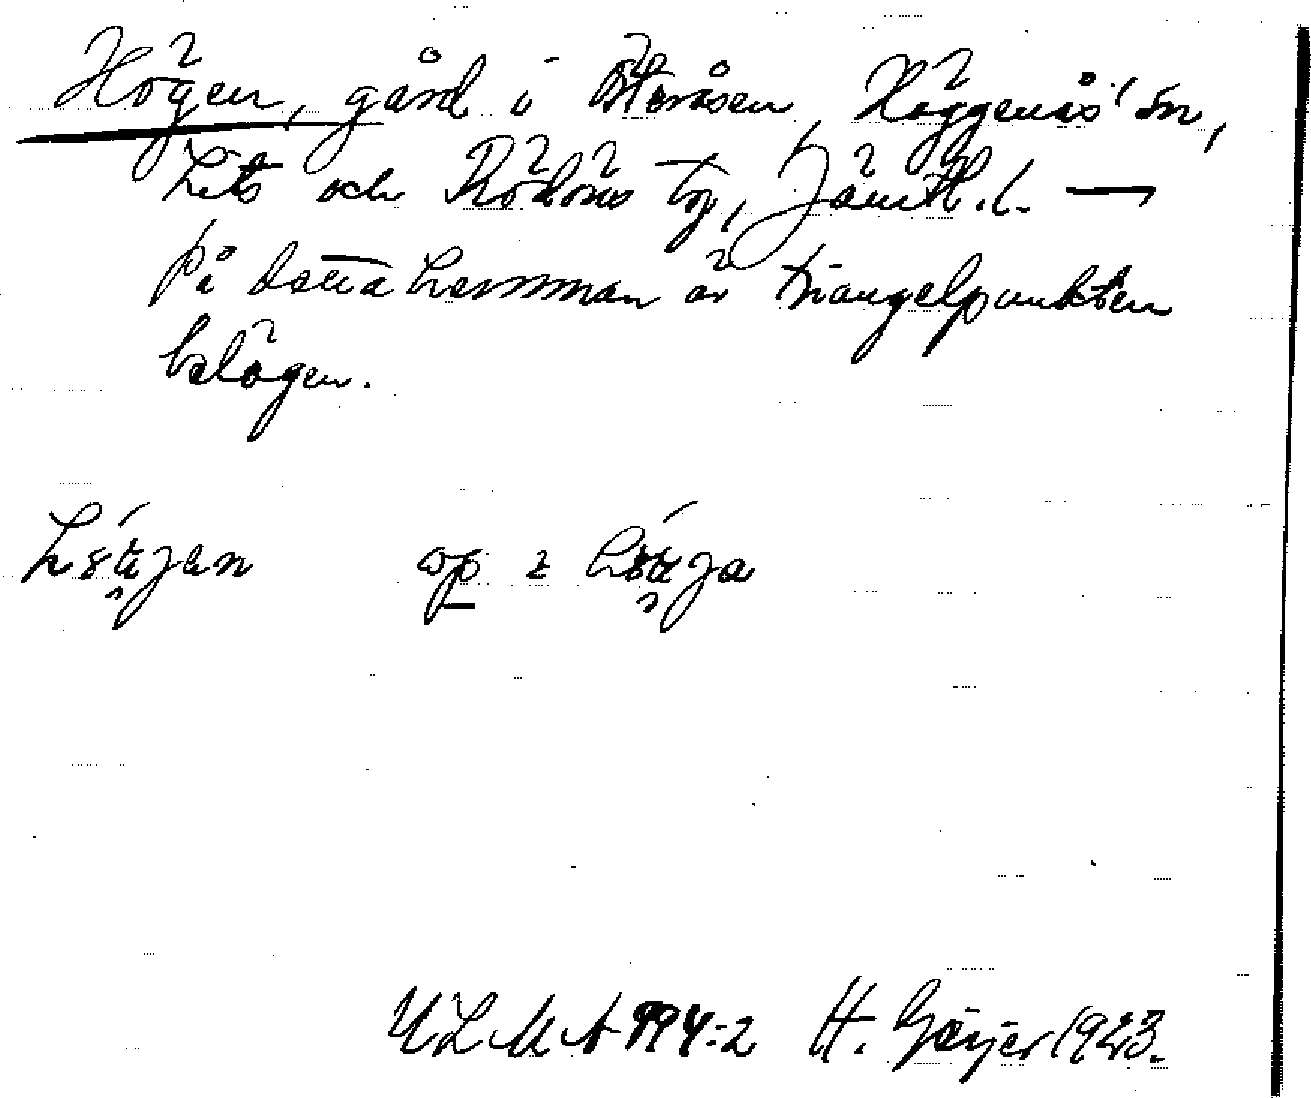 Högen, gård i Österåsen, Häggenås sn,
Lits och Rödöns tg, Jämtl. l. —
På detta hemman är triangelpunkten
belägen.
op
ULMA 994:2 H. Geijer 1923.